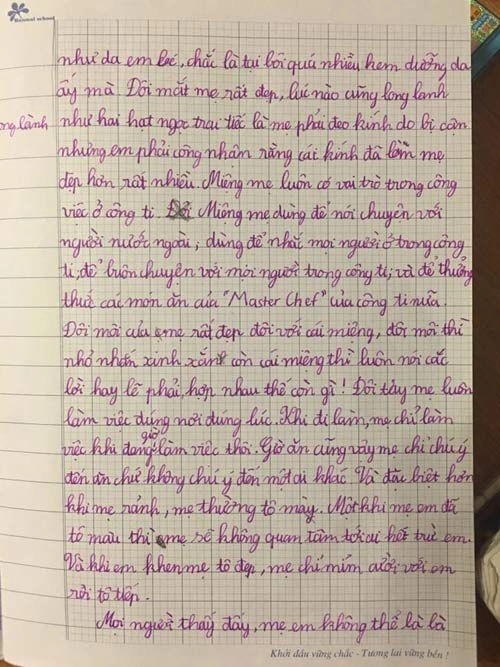 Banmai school
như da em bé, chắc là tại bôi quá nhiều kem dưỡng da
ấy mà. Đôi mắt mẹ rất đẹp, lúc nào cũng long lanh
ng lành
như hai hạt ngọc trai tiếc là mẹ phải đeo kính do bị cận
nhưng em phải công nhận rằng cái kính đã làm mẹ
đẹp hơn rất nhiều. Miệng mẹ luôn có vai trò trong công
việc ở công ti. Miệng mẹ dùng để nói chuyện với
người nước ngoài, dùng để nhắc mọi người ở trong công
ti, để buôn chuyện với mọi người trong công ti, và để thưởng
thức các món ăn của "Master Chef" của công ti nữa.
Đôi môi của mẹ rất đẹp đôi với cái miệng, đôi môi thì
nhỏ nhắn xinh xắn còn cái miệng thì luôn nói các
lời hay lẽ phải, hợp nhau thế còn gì! Đôi tay mẹ luôn
làm việc đúng nơi đúng lúc. Khi đi làm, mẹ chỉ làm
việc khi đang giờ làm việc thôi. Giờ ăn cũng vậy mẹ chỉ chú ý
đến ăn chứ không chú ý đến một cái khác. Và đặc biệt hơn
khi mẹ rảnh, mẹ thường tô màu. Một khi mẹ em đã
tô màu thì mẹ sẽ không quan tâm tới ai hết trừ em.
Và khi em khen mẹ tô đẹp, mẹ chỉ mỉm cười với em
rồi tô tiếp.
Mọi người thấy đấy, mẹ em không thể là là
Khởi đầu vững chắc - Tương lai vững bền !